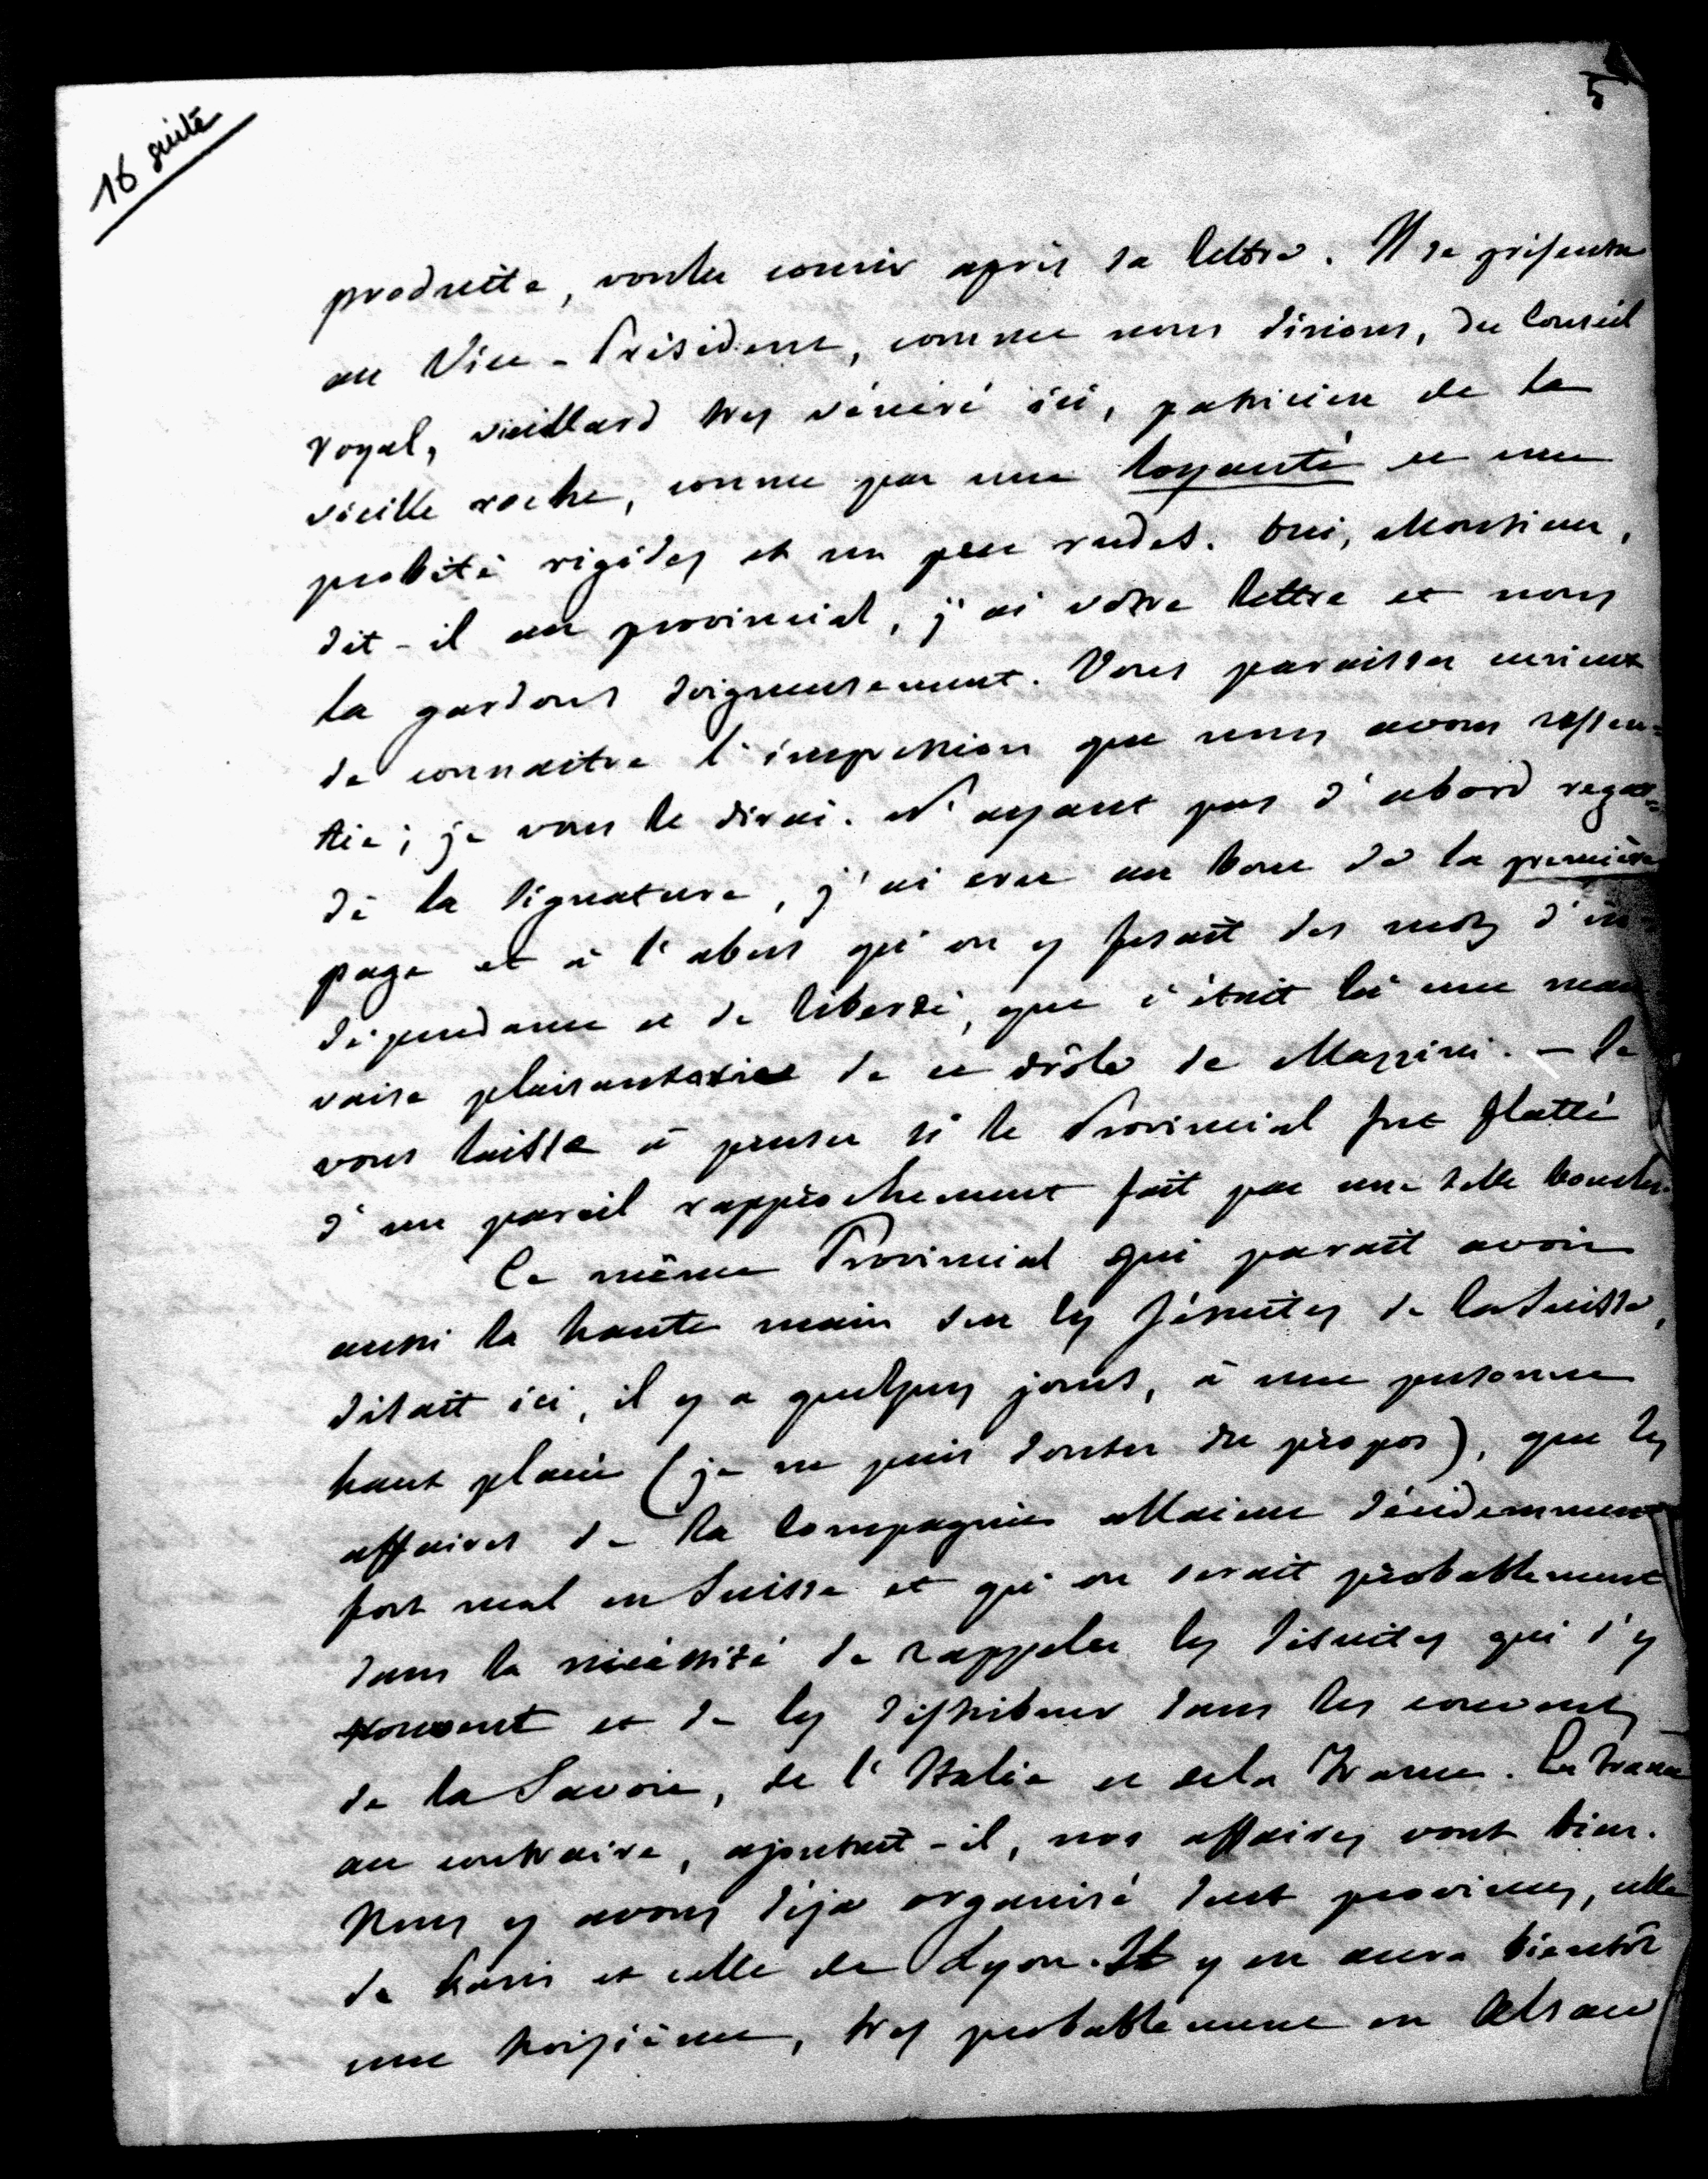 16 suite
5
produite, voulu courir après sa lettre. Il se présenta
au Vice-Président, comme nous disions, du Conseil
royal, vieillard très vénéré ici, patricien de la
vieille roche, connu par une loyauté et une
probité rigides et un peu rudes. Oui, Monsieur,
dit-il au provincial, j'ai votre lettre et nous
la gardons soigneusement. Vous paraissez curieux
de connaître l'impression que nous avons ressen=
tie; je vous le dirai. N'ayant pas d'abord regar=
dé la signature, j'ai cru au bout de la première
page et à l'abus qu'on y fesait des mots d'in
dépendance et de liberté, que c'était là une mau
vaise plaisanterie de ce drôle de Mazzini. — Je
vous laisse à penser si le Provincial fut flatté
d'un pareil rapprochement fait par une telle bouche.
Ce même Provincial qui parait avoir
aussi la haute main sur les Jésuites de la Suisse,
disait ici, il y a quelques jours, à une personne
haut placée (je ne puis douter du propos), que les
affaires de la Compagnie allaient décidemment
fort mal en Suisse et qu'on serait probablement
dans la nécessité de rappeler les Jésuites qui s'y
trouvent et de les distribuer dans les couvents
de la Savoie, de l'Italie et de la France. En France
au contraire, ajoutait-il, nos affaires vont bien.
Nous y avons déja organisé deux provinces, celle
de Paris et celle de Lyon. Il y en aura bientôt
une troisième, très probablement en Alsace